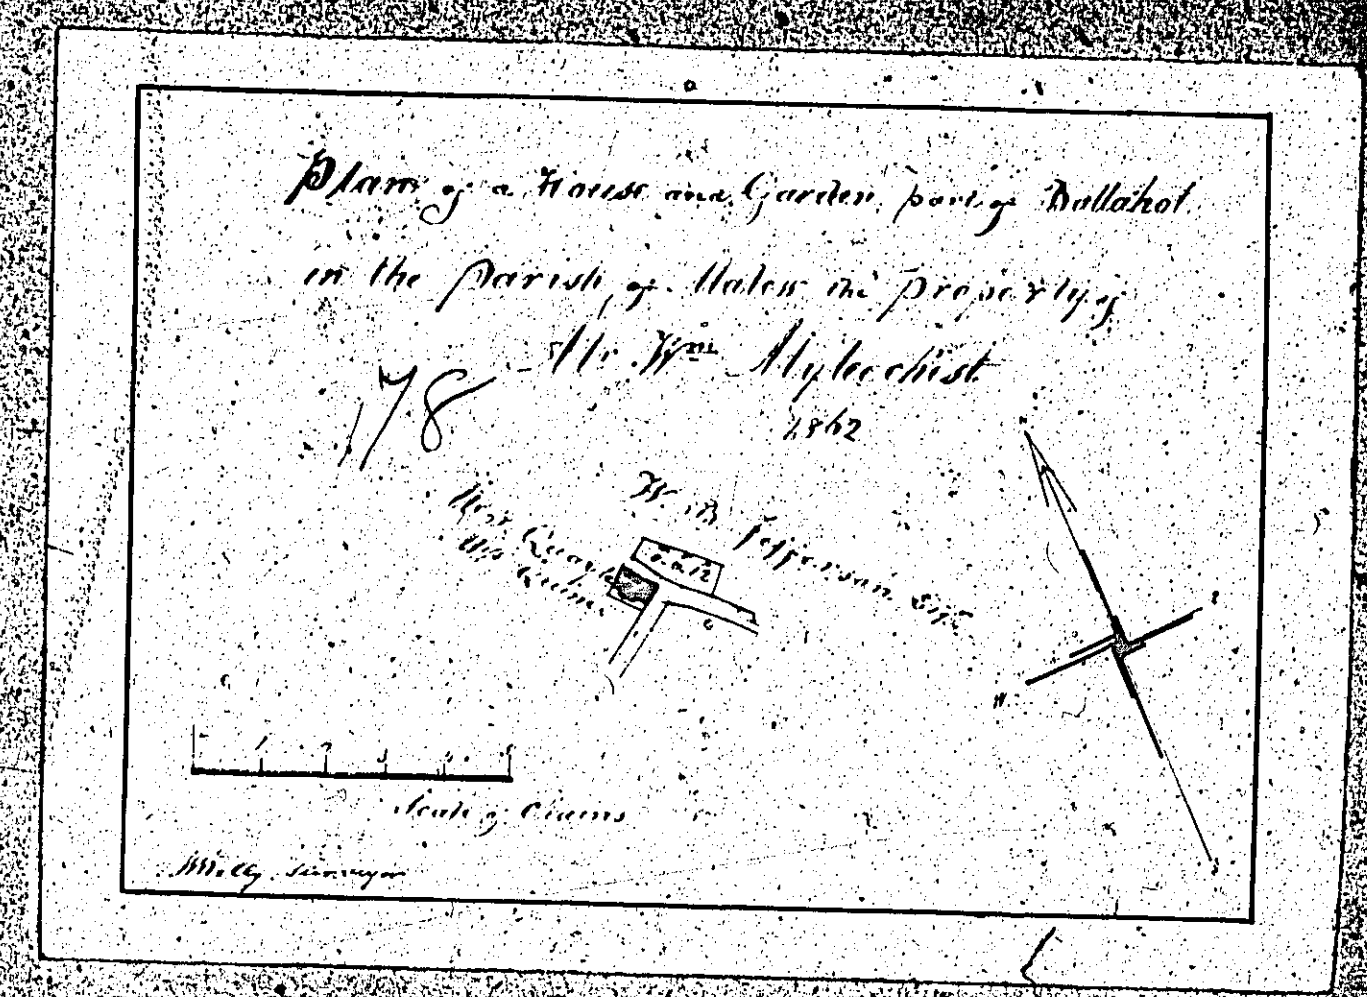 Plan of a House and Garden part of Ballahot
in the Parish of Malew the property of
Mr. Wm Mylechrist
1862
178
W. B. Jefferson Esq
Mrs Quayle
0.0.12
N
E
W
S
1 2 3 4 5
Scale of Chains
Surveyor